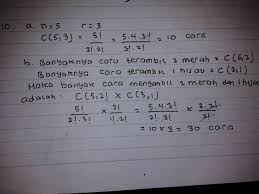 10. a. n=5 r=3
C(5,3) = 5!/3!.2! = 5.4.3!/3!.2! = 10 cara
b. Banyaknya cara terambil 2 merah = C(5,2)
Banyaknya cara terambil 1 hijau = C(3,1)
Maka banyak cara mengambil 2 merah dan 1 hijau
adalah : C(5,2) x C(3,1)
5!/2!.3! x 3!/1!.2! = 5.4.3!/2!.3! x 3.2!/2!
= 10 x 3 = 30 cara